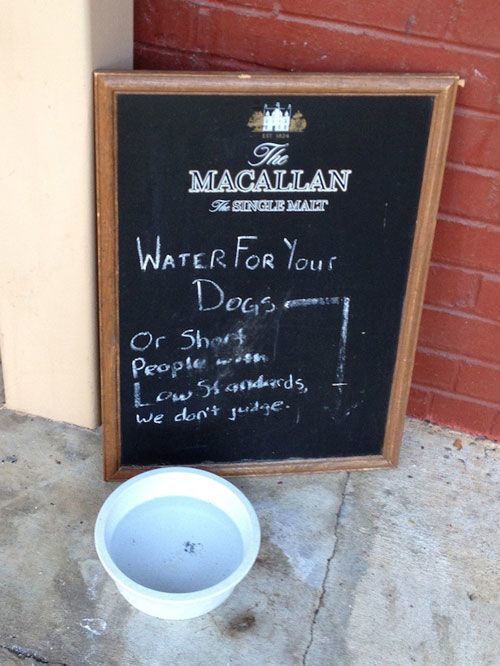 EST. 1824
The
MACALLAN
The SINGLE MALT
WATER FOR YOUR
DOGS
Or Short
People with
Low Standards,
we don't judge.